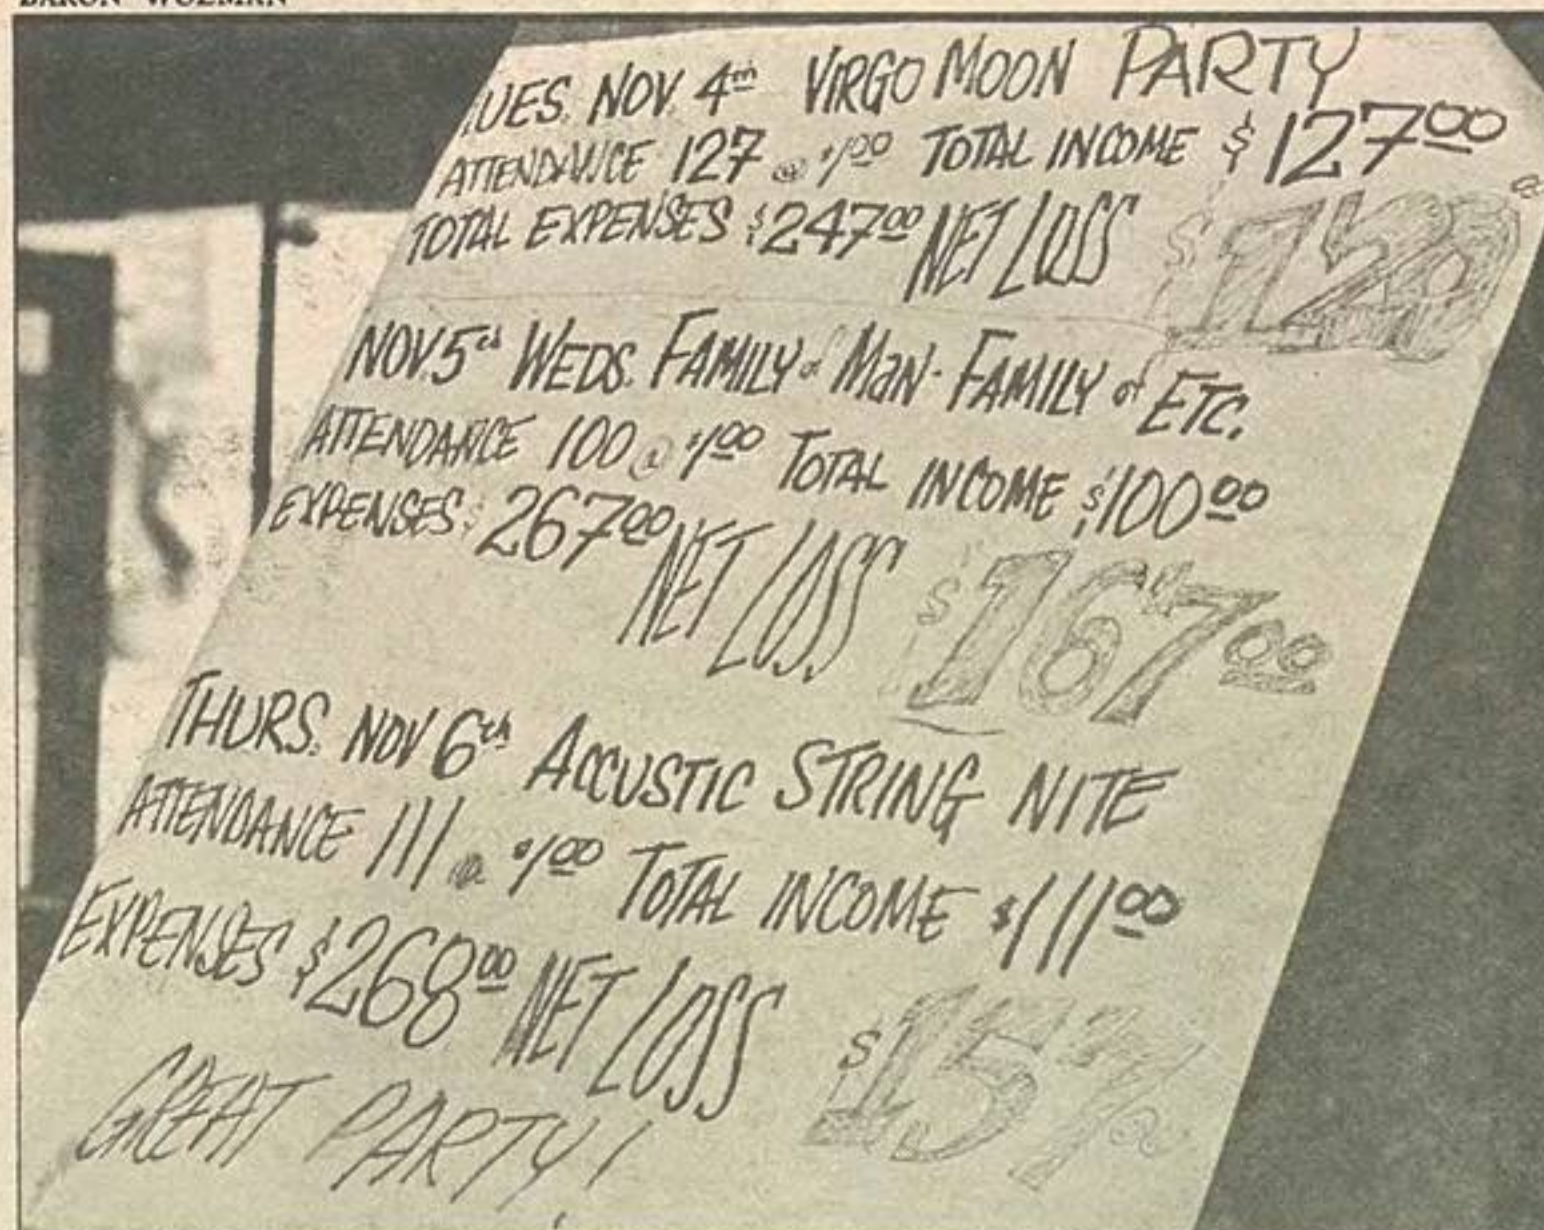 BARON WOLMAN
TUES. NOV. 4th VIRGO MOON PARTY
ATTENDANCE 127 @ $1.00 TOTAL INCOME $127.00
TOTAL EXPENSES $247.00 NET LOSS $120.00
NOV. 5th WEDS. FAMILY of MaN - FAMILY of ETC.
ATTENDANCE 100 @ $1.00 TOTAL INCOME $100.00
EXPENSES $267.00 NET LOSS $167.00
THURS. NOV 6th ACCUSTIC STRING NITE
ATTENDANCE 111 @ $1.00 TOTAL INCOME $111.00
EXPENSES $268.00 NET LOSS $157.00
GREAT PARTY!